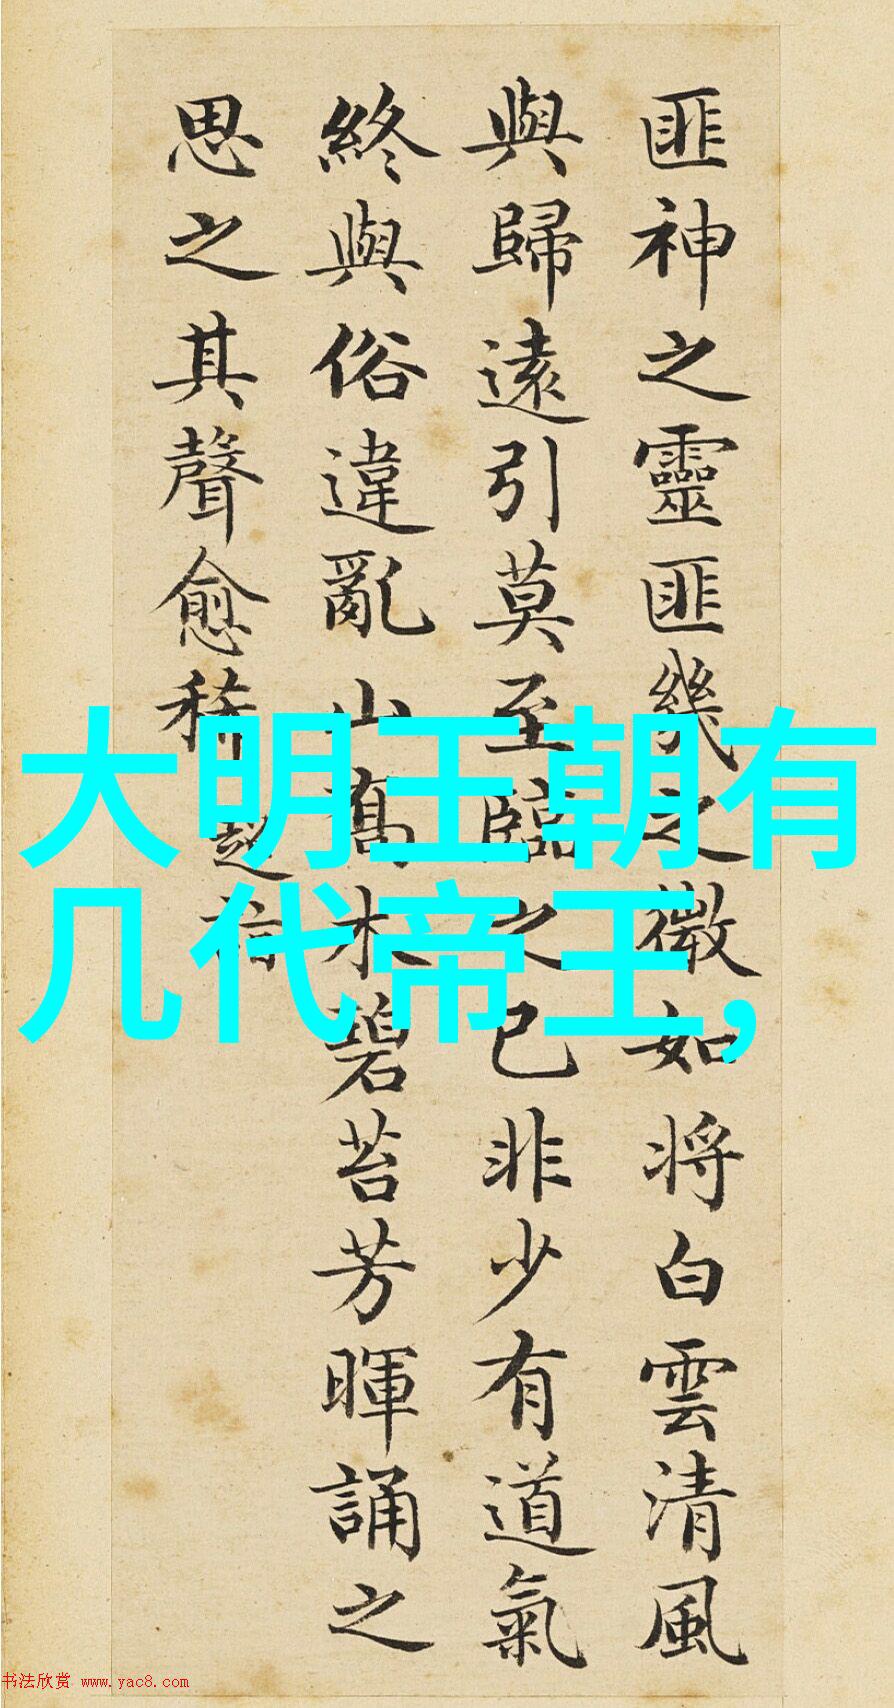 匪神之靈匪幾之微如將白雲清風
與歸遠引莫至臨之已非少有道氣
終與俗違亂山喬木碧苔芳暉誦之
思之其聲愈稀
大明王朝有
几代帝王,
书法欣赏 www.yac8.com